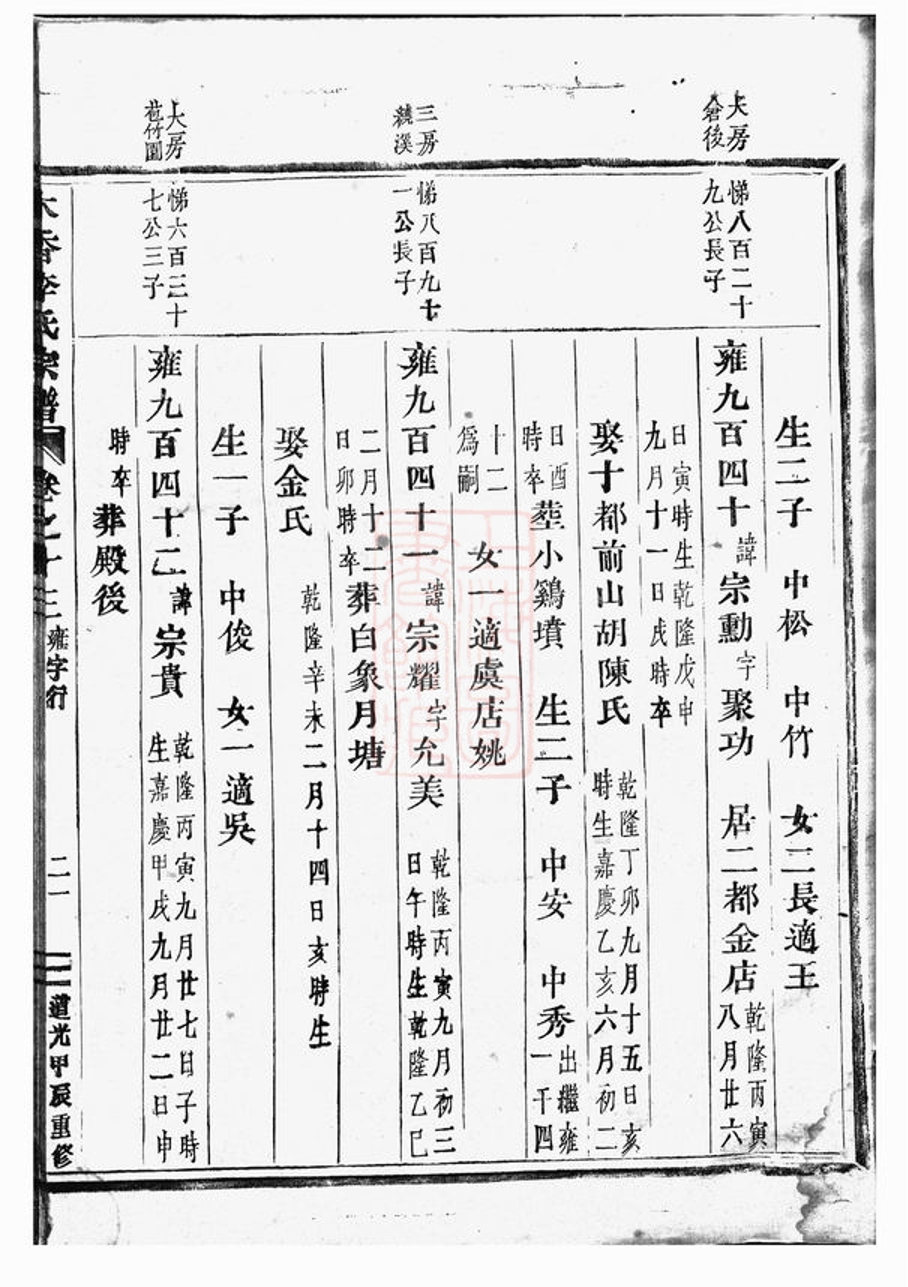 大房
倉後
悌八百二十
九公長子
三房
悌八百九七
一公長子
大房
竹園
悌六百三十
七公三子
生二子 中松 中竹 女二長適王
雍九百四十諱宗勳字聚功 居二都金店乾隆丙寅八月廿六
日寅時生乾隆戊申九月十一日戌時卒
娶十都前山胡陳氏 乾隆丁卯九月十五日亥時生嘉慶乙亥六月初二
日酉時卒葬小鷄墳 生二子 中安 中秀出繼雍一千四
十二為嗣 女一適虞店姚
雍九百四十一諱宗耀字允美 乾隆丙寅九月初三日午時生乾隆乙巳
二月十二日卯時卒葬白象月塘
娶金氏 乾隆辛未二月十四日亥時生
生一子 中俊 女一適吳
雍九百四十二諱宗貴 乾隆丙寅九月廿七日子時生嘉慶甲戌九月廿二日申
時卒葬殿後
李氏宗譜 卷之十三 雍字行 二一 道光甲辰重修